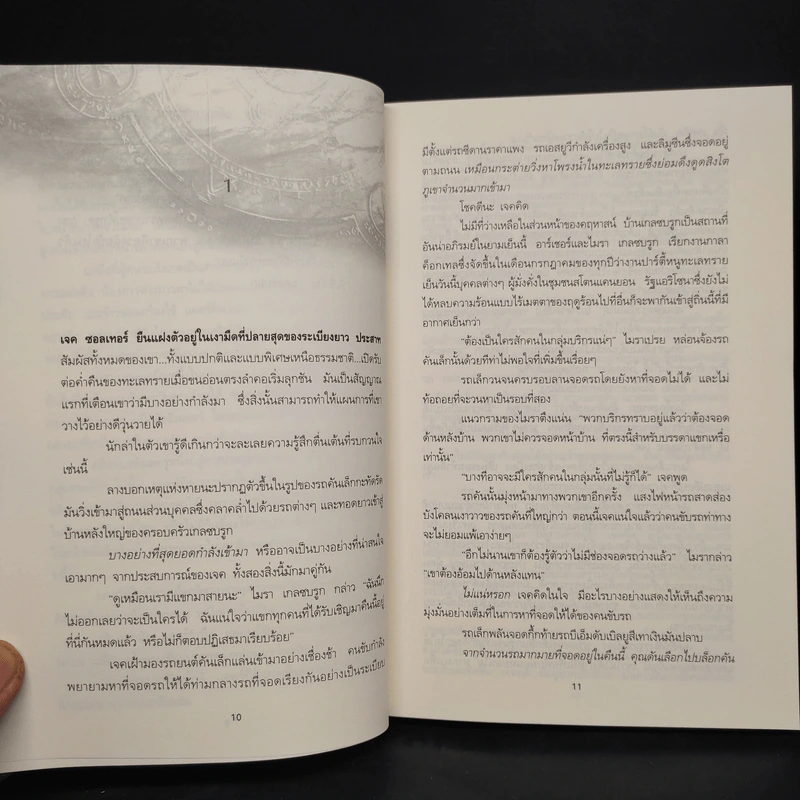 1
เจค ซอลเทอร์ ยืนแฝงตัวอยู่ในเงามืดที่ปลายสุดของระเบียงยาว ประสาท
สัมผัสทั้งหมดของเขา...ทั้งแบบปกติและแบบพิเศษเหนือธรรมชาติ...เปิดรับ
ต่อค่ำคืนของทะเลทรายเมื่อขนอ่อนตรงลำคอเริ่มลุกชัน มันเป็นสัญญาณ
แรกที่เตือนเขาว่ามีบางอย่างกำลังมา ซึ่งสิ่งนั้นสามารถทำให้แผนการที่เขา
วางไว้อย่างดีวุ่นวายได้
นักล่าในตัวเขารู้ดีเกินกว่าจะละเลยความรู้สึกตื่นเต้นที่รบกวนใจ
เช่นนี้
ลางบอกเหตุแห่งหายนะปรากฏตัวขึ้นในรูปของรถคันเล็กกะทัดรัด
มันวิ่งเข้ามาสู่ถนนส่วนบุคคลซึ่งคลาคล่ำไปด้วยรถต่างๆ และทอดยาวเข้าสู่
บ้านหลังใหญ่ของครอบครัวเกลซบรูก
บางอย่างที่สุดยอดกำลังเข้ามา หรืออาจเป็นบางอย่างที่น่าสนใจ
เอามากๆ จากประสบการณ์ของเจค ทั้งสองสิ่งนี้มักมาคู่กัน
"ดูเหมือนเรามีแขกมาสายนะ" ไมรา เกลซบรูก กล่าว "ฉันนึก
ไม่ออกเลยว่าจะเป็นใครได้ ฉันแน่ใจว่าแขกทุกคนที่ได้รับเชิญมาคืนนี้อยู่
ที่นี่กันหมดแล้ว หรือไม่ก็ตอบปฏิเสธมาเรียบร้อย"
เจคเฝ้ามองรถยนต์คันเล็กแล่นเข้ามาอย่างเชื่องช้า คนขับกำลัง
พยายามหาที่จอดรถให้ได้ท่ามกลางรถที่จอดเรียงกันอย่างเป็นระเบียบ
10
มีตั้งแต่รถซีดานราคาแพง รถเอสยูวีกำลังเครื่องสูง และลิมูซีนซึ่งจอดอยู่
ตามถนน เหมือนกระต่ายวิ่งหาโพรงน้ำในทะเลทรายซึ่งย่อมดึงดูดสิงโต
ภูเขาจำนวนมากเข้ามา
โชคดีนะ เจคคิด
ไม่มีที่ว่างเหลือในส่วนหน้าของคฤหาสน์ บ้านเกลซบรูกเป็นสถานที่
อันน่าอภิรมย์ในยามเย็นนี้ อาร์เชอร์และไมรา เกลซบรูก เรียกงานกาลา
ค็อกเทลซึ่งจัดขึ้นในเดือนกรกฎาคมของทุกปีว่างานปาร์ตี้หนูทะเลทราย
เย็นวันนี้บุคคลต่างๆ ผู้มั่งคั่งในชุมชนสโตนแคนยอน รัฐแอริโซนาซึ่งยังไม่
ได้หลบความร้อนแบบไร้เมตตาของฤดูร้อนไปที่อื่นก็จะพากันเข้าสู่ถิ่นนี้ที่มี
อากาศเย็นกว่า
"ต้องเป็นใครสักคนในกลุ่มบริกรแน่ๆ" ไมราเปรย หล่อนจ้องรถ
คันเล็กนั้นด้วยทีท่าไม่พอใจที่เพิ่มขึ้นเรื่อยๆ
รถเล็กวนจนครบรอบลานจอดรถโดยยังหาที่จอดไม่ได้ และไม่
ท้อถอยที่จะวนหาเป็นรอบที่สอง
แนวกรามของไมราตึงแน่น "พวกบริกรทราบอยู่แล้วว่าต้องจอด
ด้านหลังบ้าน พวกเขาไม่ควรจอดหน้าบ้าน ที่ตรงนี้สำหรับบรรดาแขกเหรื่อ
เท่านั้น"
"บางทีอาจจะมีใครสักคนในกลุ่มนั้นที่ไม่รู้ก็ได้" เจคพูด
รถคันนั้นมุ่งหน้ามาทางพวกเขาอีกครั้ง แสงไฟหน้ารถสาดส่อง
บังโคลนเงาวาวของรถคันที่ใหญ่กว่า ตอนนี้เจคแน่ใจแล้วว่าคนขับรถท่าทาง
จะไม่ยอมแพ้เอาง่ายๆ
"อีกไม่นานเขาก็ต้องรู้ตัวว่าไม่มีช่องจอดรถว่างแล้ว" ไมรากล่าว
"เขาต้องอ้อมไปด้านหลังแทน"
ไม่แน่หรอก เจคคิดในใจ มีอะไรบางอย่างแสดงให้เห็นถึงความ
มุ่งมั่นอย่างเต็มที่ในการหาที่จอดให้ได้ของคนขับรถ
รถเล็กพลันจอดกึ้กท้ายรถบีเอ็มดับเบิลยูสีเทาเงินมันปลาบ
จากจำนวนรถมากมายที่จอดอยู่ในคืนนี้ คุณดันเลือกไปบล็อกคัน
11